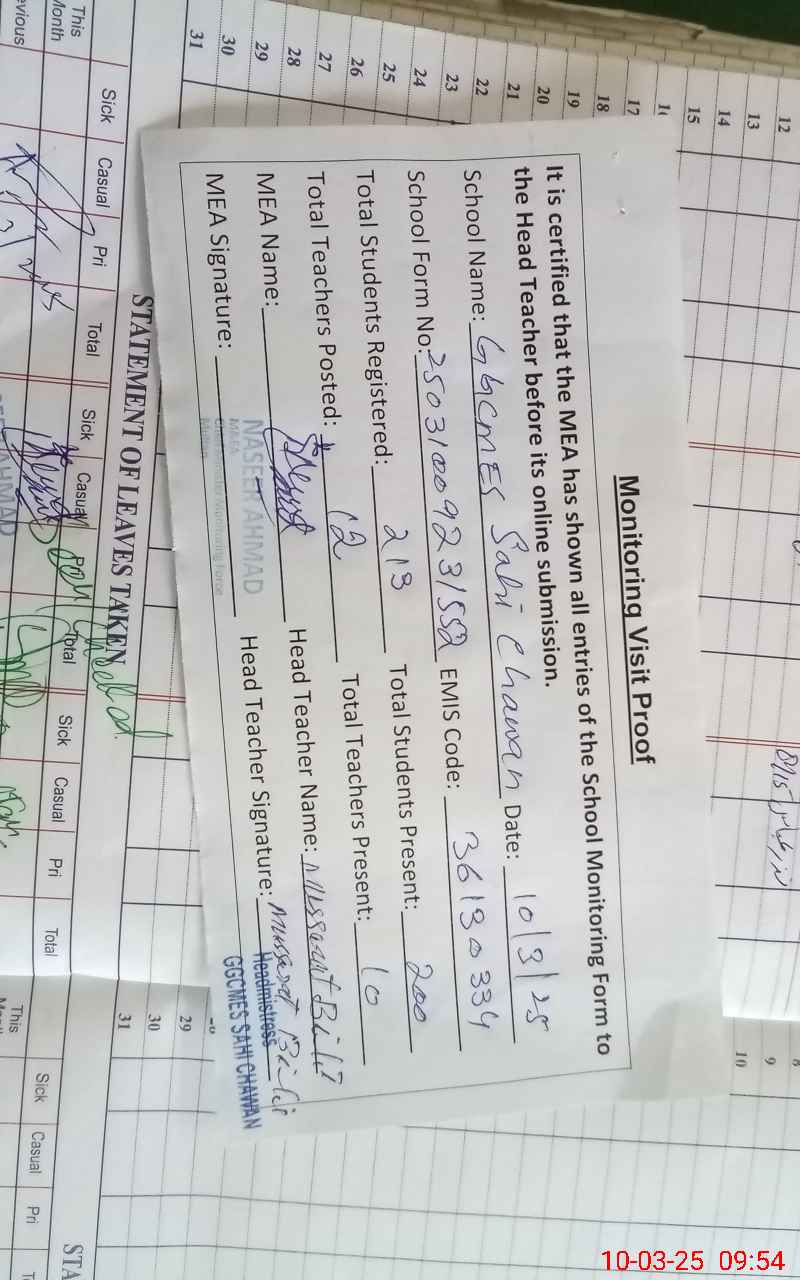 Monitoring Visit Proof
It is certified that the MEA has shown all entries of the School Monitoring Form to
the Head Teacher before its online submission.
School Name: GGCMES Sahi Chawan Date: 10/3/25
School Form No: 25031009231552 EMIS Code: 36130334
Total Students Registered: 213 Total Students Present: 200
Total Teachers Posted: 12 Total Teachers Present: 10
MEA Name: Head Teacher Name: Mussarat Bibi
MEA Signature: Head Teacher Signature: Mussarat Bibi
NASEER AHMAD
MAEA
Headmistress
GGCMES SAHI CHAWAN
STATEMENT OF LEAVES TAKEN
Sick Casual Pri Total Sick Casual Pri Total Sick Casual Pri Total
This
Month
evious
12
13
14
15
17
18
19
20
21
22
23
24
25
26
27
28
29
30
31
9
10
29
30
31
STA
This
Sick Casual Pri
AHMAD
10-03-25 09:54